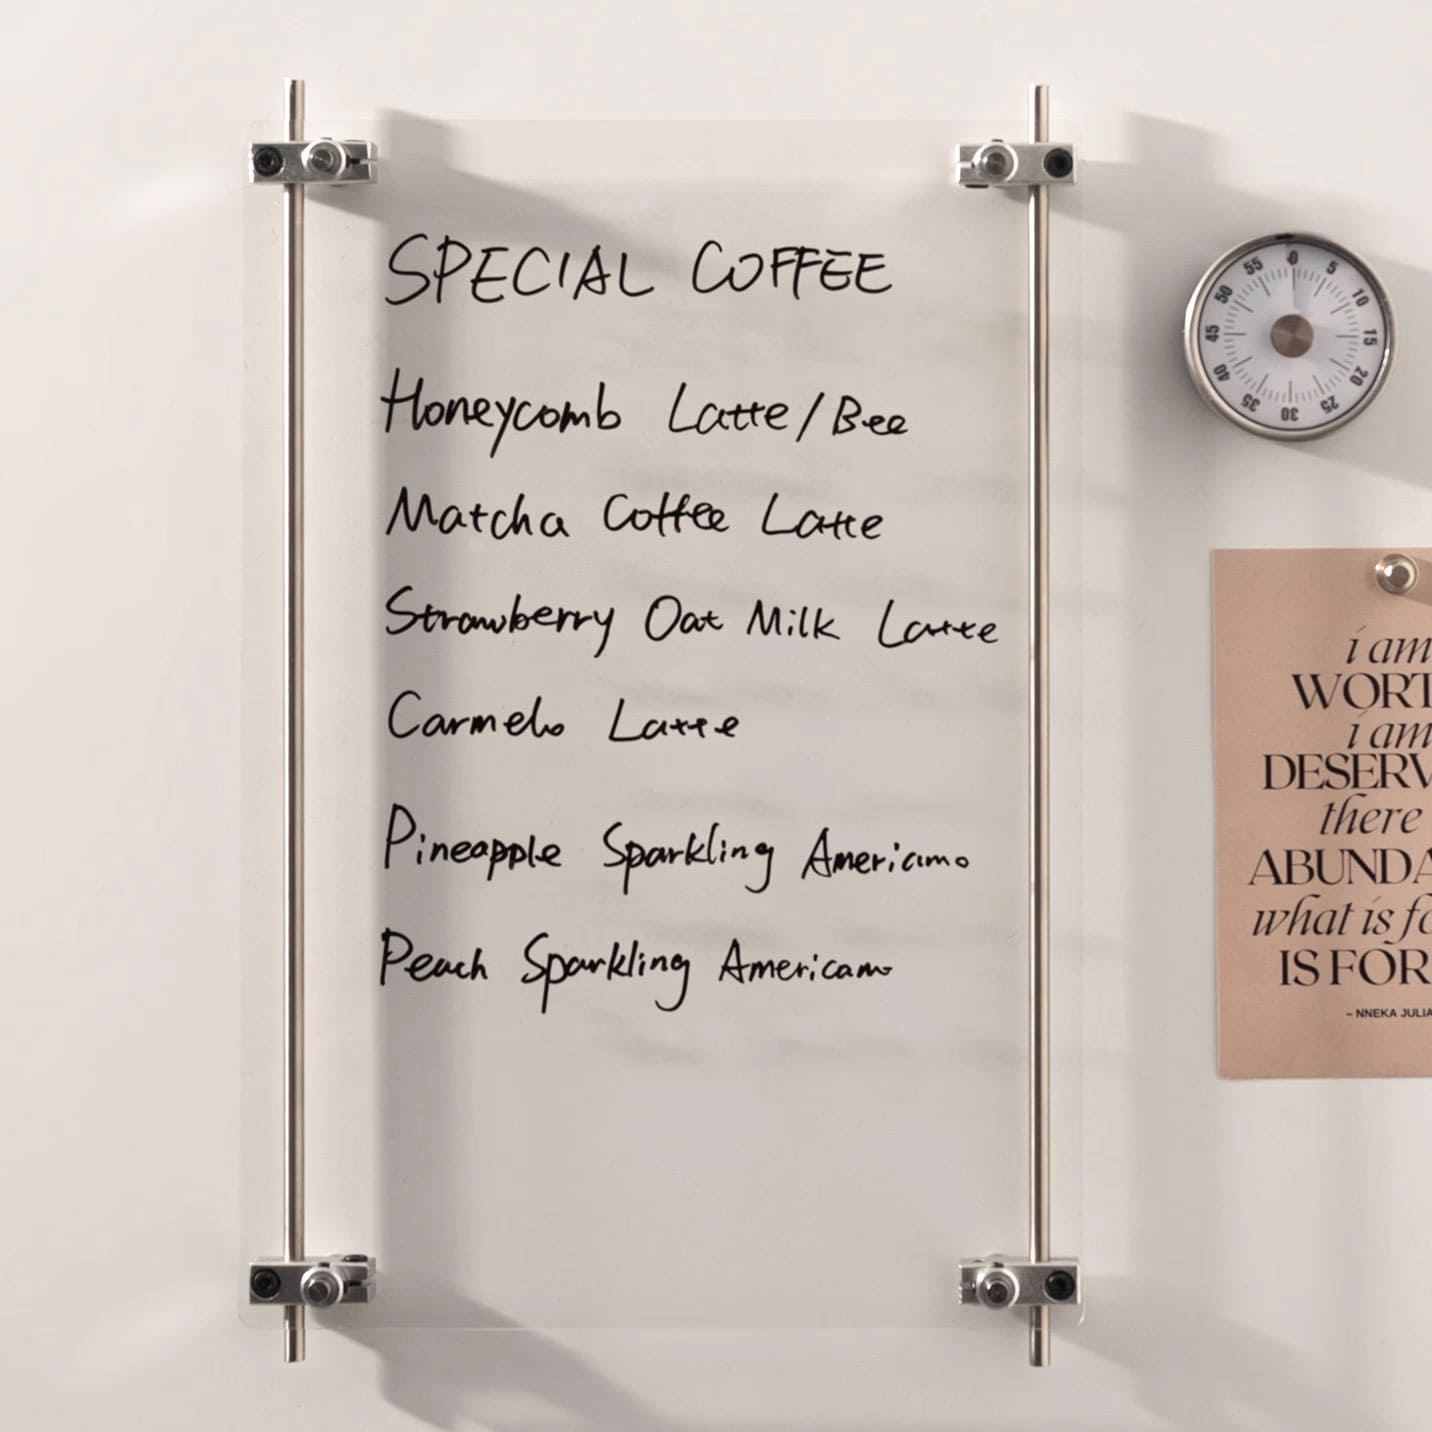 SPECIAL COFFEE
Honeycomb Latte/Bee
Matcha Coffee Latte
Strawberry Oat Milk Latte
Carmelo Latte
Pineapple Sparkling Americano
Peach Sparkling Americano
0 5 10 15 20 25 30 35 40 45 50 55
i am
WORT
i am
DESERV
there
ABUNDA
what is fo
IS FOR
~ NNEKA JULIA